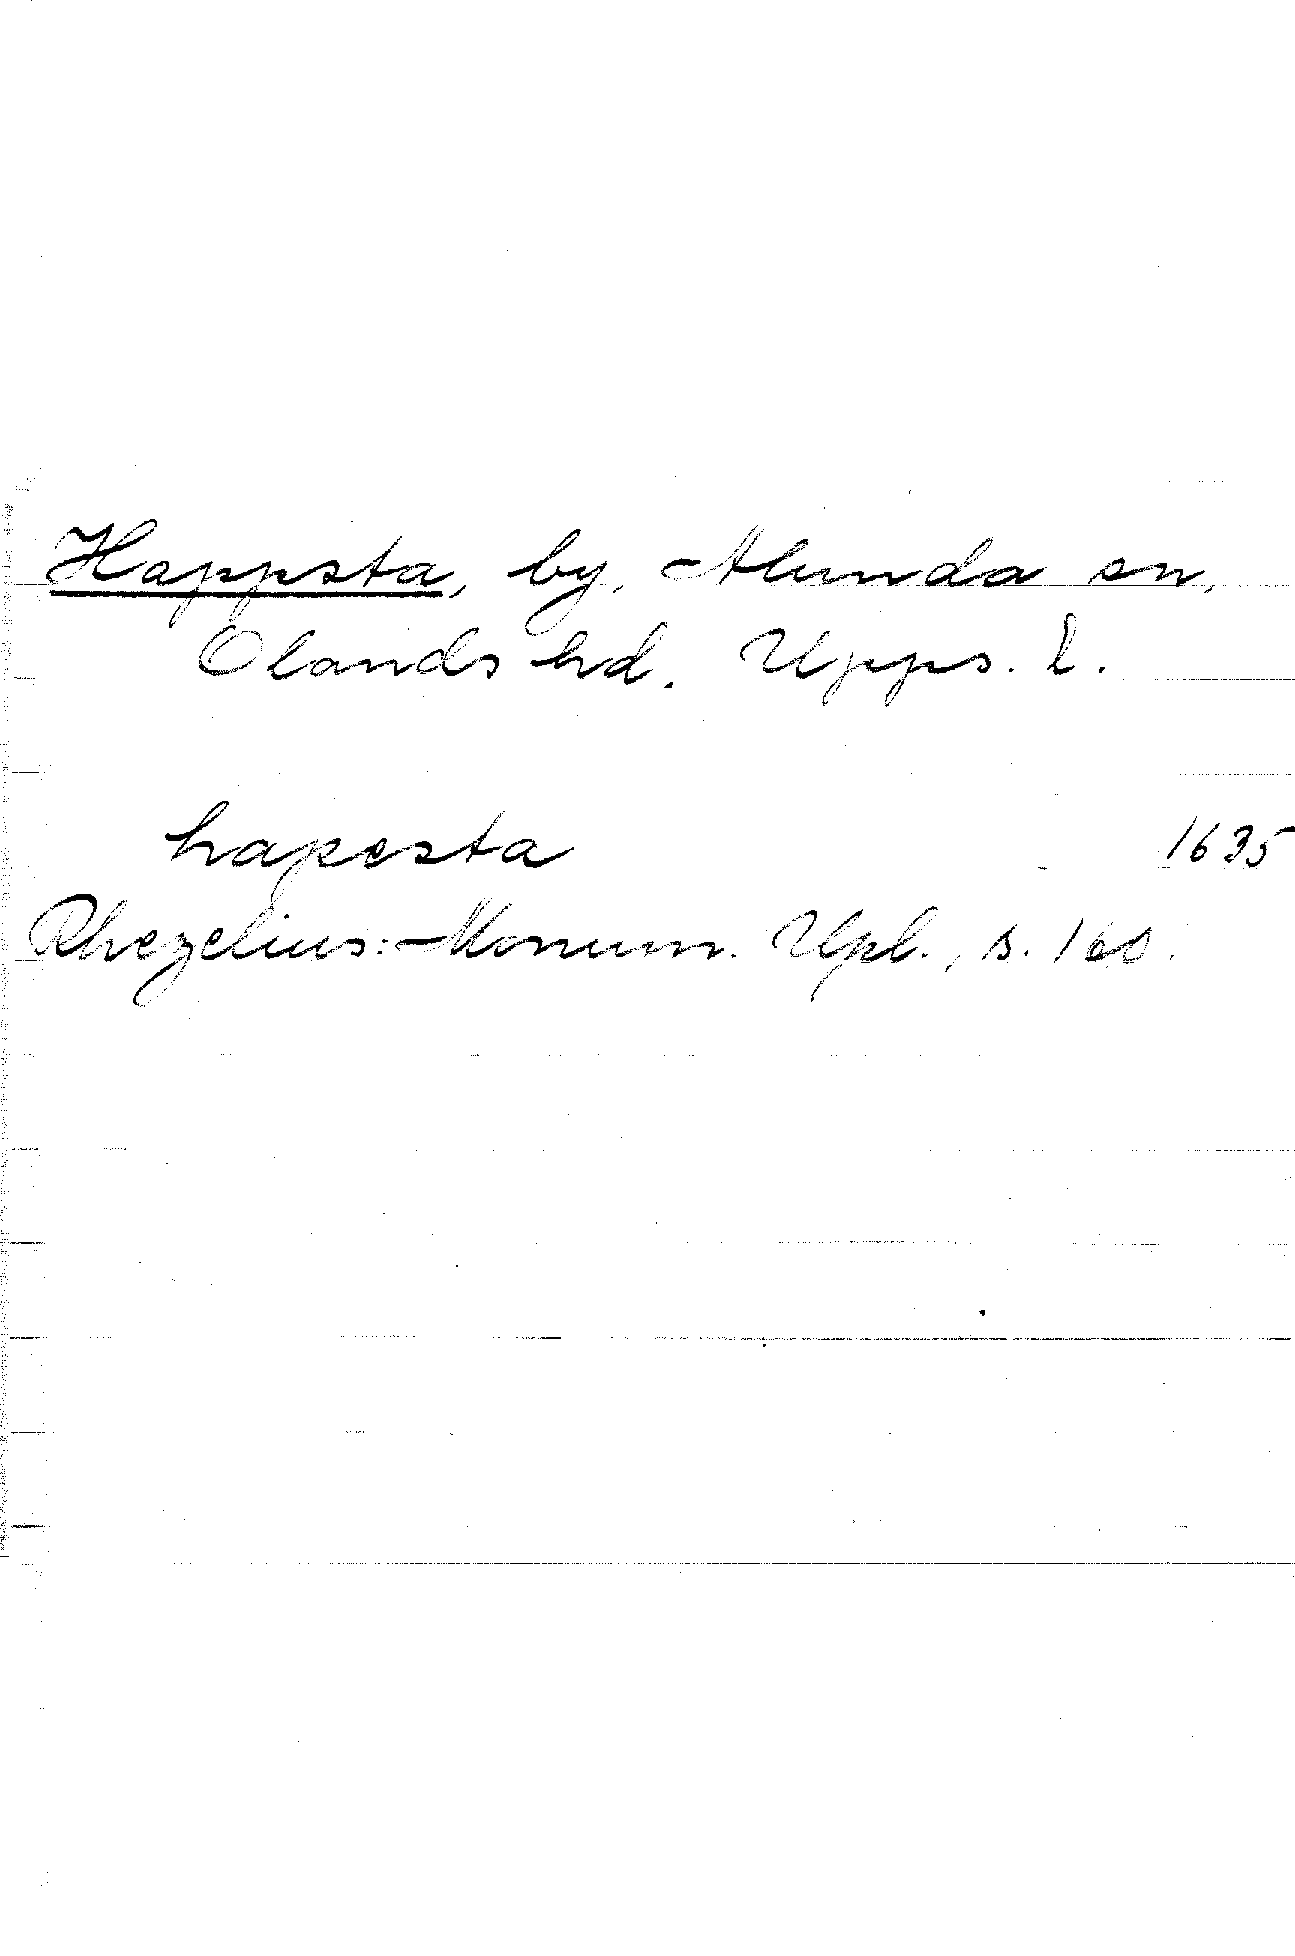 Happsta, by, Alunda sn,
Olands hd. Upps. l.
hapesta 1635
Rhezelius: Monum. Upl., s. 160.